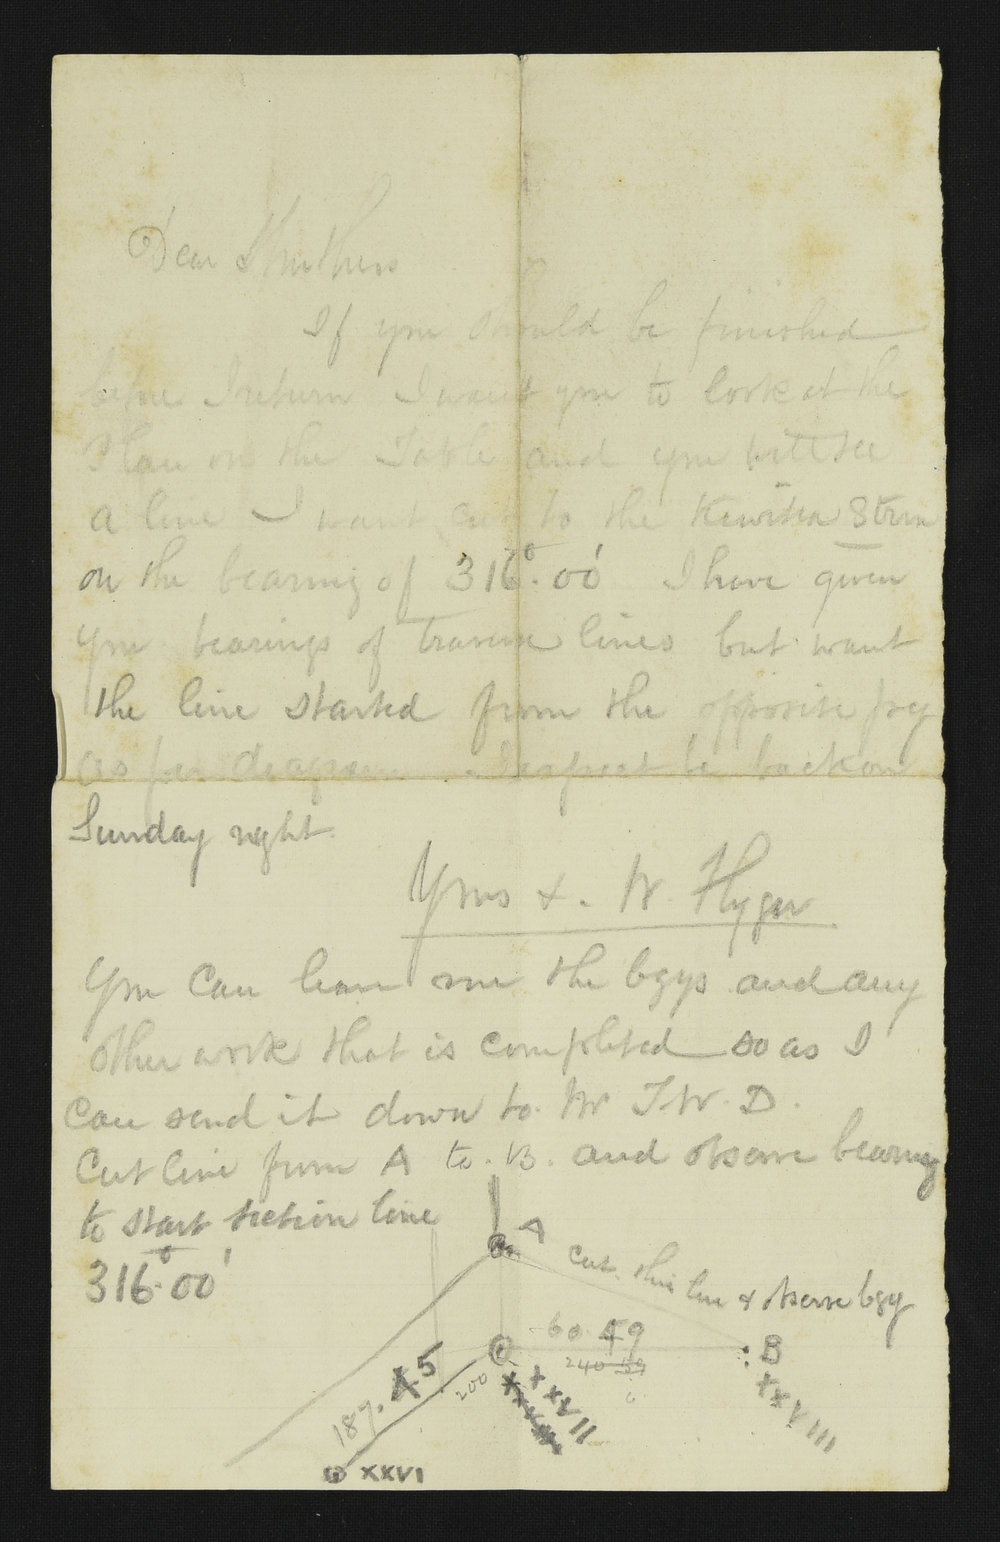 Dear Struthers
If you should be finished
before I return I want you to look at the
Plan on the Table and you will see
a line I want cut to the Kawitia Strm
on the bearing of 316°.00' I have given
you bearings of traverse lines but want
the line started from the opposite peg
as per diagram. I expect to be back on
Sunday night.
Yrs &. W. Flyger
You can leave me the bgys and any
other work that is completed so as I
can send it down to. Mr T.W.D.
Cut line from A to. B. and observe bearing
to start section line
316°.00'
A
Cut this line & observe bgy
60.49
240 59
B
XXVIII
187.45
200
XXVII
XXVI